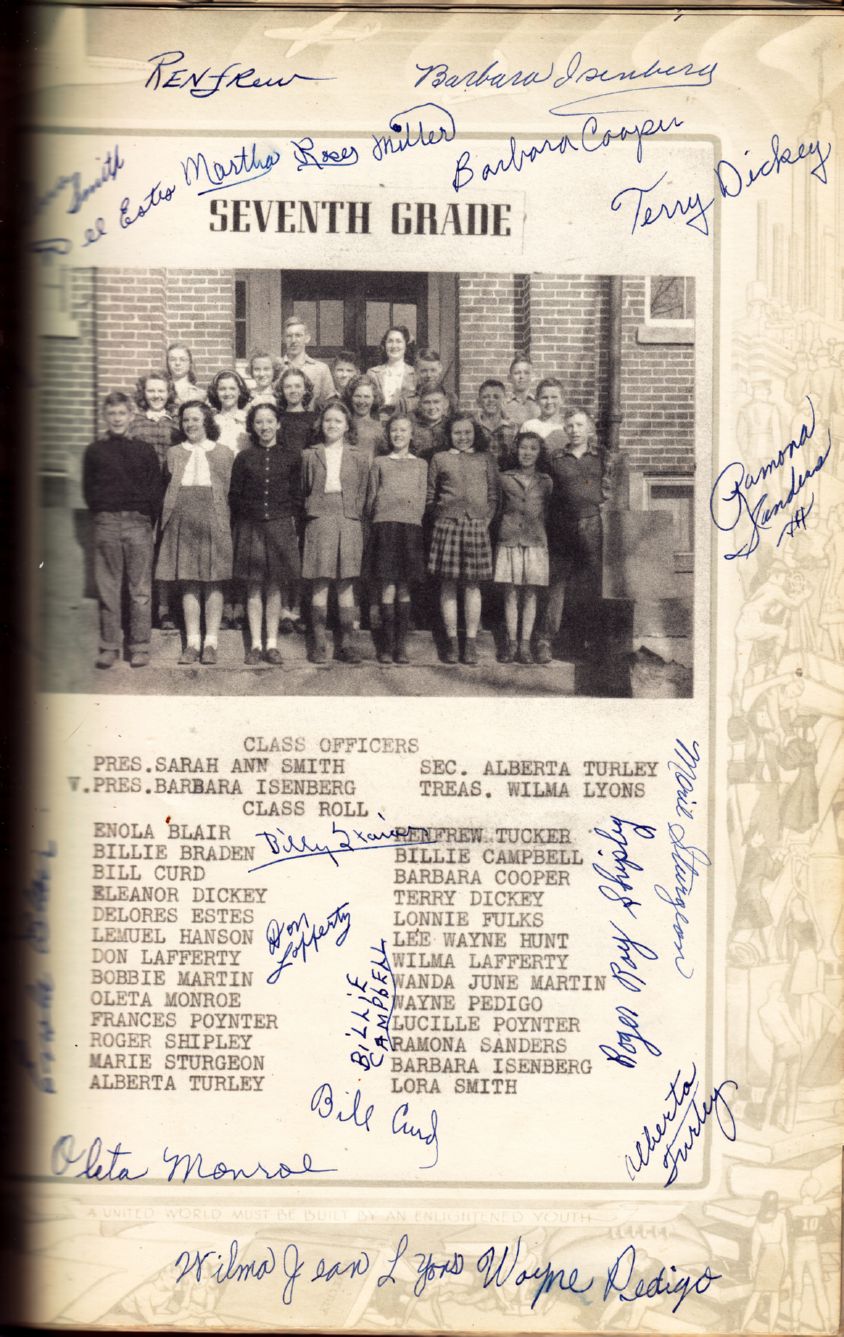 Renfrew
Barbara Isenberg
Smith
Del Estes
Martha Roses Miller
Barbara Cooper
Terry Dickey
SEVENTH GRADE
Ramona Sanders
CLASS OFFICERS
PRES.SARAH ANN SMITH SEC. ALBERTA TURLEY
V.PRES.BARBARA ISENBERG TREAS. WILMA LYONS
CLASS ROLL
ENOLA BLAIR RENFREW TUCKER
BILLIE BRADEN BILLIE CAMPBELL
BILL CURD BARBARA COOPER
ELEANOR DICKEY TERRY DICKEY
DELORES ESTES LONNIE FULKS
LEMUEL HANSON LEE WAYNE HUNT
DON LAFFERTY WILMA LAFFERTY
BOBBIE MARTIN WANDA JUNE MARTIN
OLETA MONROE WAYNE PEDIGO
FRANCES POYNTER LUCILLE POYNTER
ROGER SHIPLEY RAMONA SANDERS
MARIE STURGEON BARBARA ISENBERG
ALBERTA TURLEY LORA SMITH
Billy
Don Lafferty
BILLIE CAMPBELL
Roger Ray Shipley
Marie Sturgeon
Bill Curd
Alberta Turley
Oleta Monroe
A UNITED WORLD MUST BE BUILT BY AN ENLIGHTENED YOUTH
10
Wilma Jean Lyons Wayne Pedigo